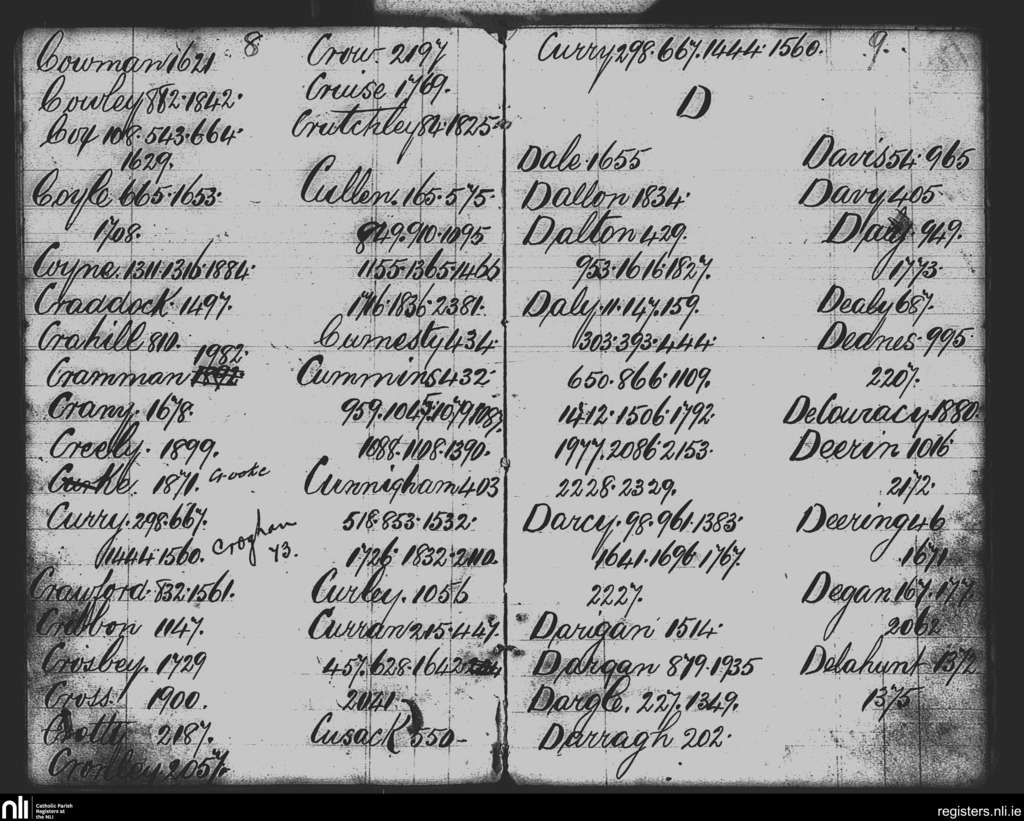 8
Cowman 1621
Cowley 882.1842.
Coy 108.543.664.
1629.
Coyle 665.1653.
1708.
Coyne.1311.1316.1884.
Craddock.1497.
Crahill 810.
1982.
Cramman 1892.
Crany.1678.
Creely.1899.
1871. Crooke
Curry.298.667.
1444.1560. Croghan
73.
Crawford.832.1561.
Cribbon 1147.
Crosbey.1729
Cross 1900.
Crotty 2187.
2057.
Crow 2197
Cruise 1769.
Crutchley 84.1825.
Cullen.165.575.
849.910.1095
1155.1365.1466
1716.1836.2381.
Cumesty 434.
Cummins 432.
959.1045.1079.1087.
1088.1108.1390.
Cunnigham 403
518.853.1532.
1726.1832.2110.
Curley.1056
Curran 215.447.
457.628.1642
2041.
Cusack 550-
Curry 298.667.1444.1560. 9.
D
Dale 1655
Dallon 1834.
Dalton 429.
953.1616.1827.
Daly.11.147.159.
303.393.444.
650.866.1109.
1412.1506.1792.
1977.2086.2153.
2228.2329.
Darcy.98.961.1383.
1641.1696.1767.
2227.
Darigan 1514.
Dargan 879.1935
Dargle.227.1349.
Darragh 202.
Davis 54.965
Davy 405
Day 949.
1773.
Dealy 687.
Deanes.995
2207.
DeCouracy 1880.
Deerin 1016
2172.
Deering 46
1671
Degan 167.177
2062
Delahunt 1372
1375
nli
Catholic Parish
Registers at
the NLI
registers.nli.ie